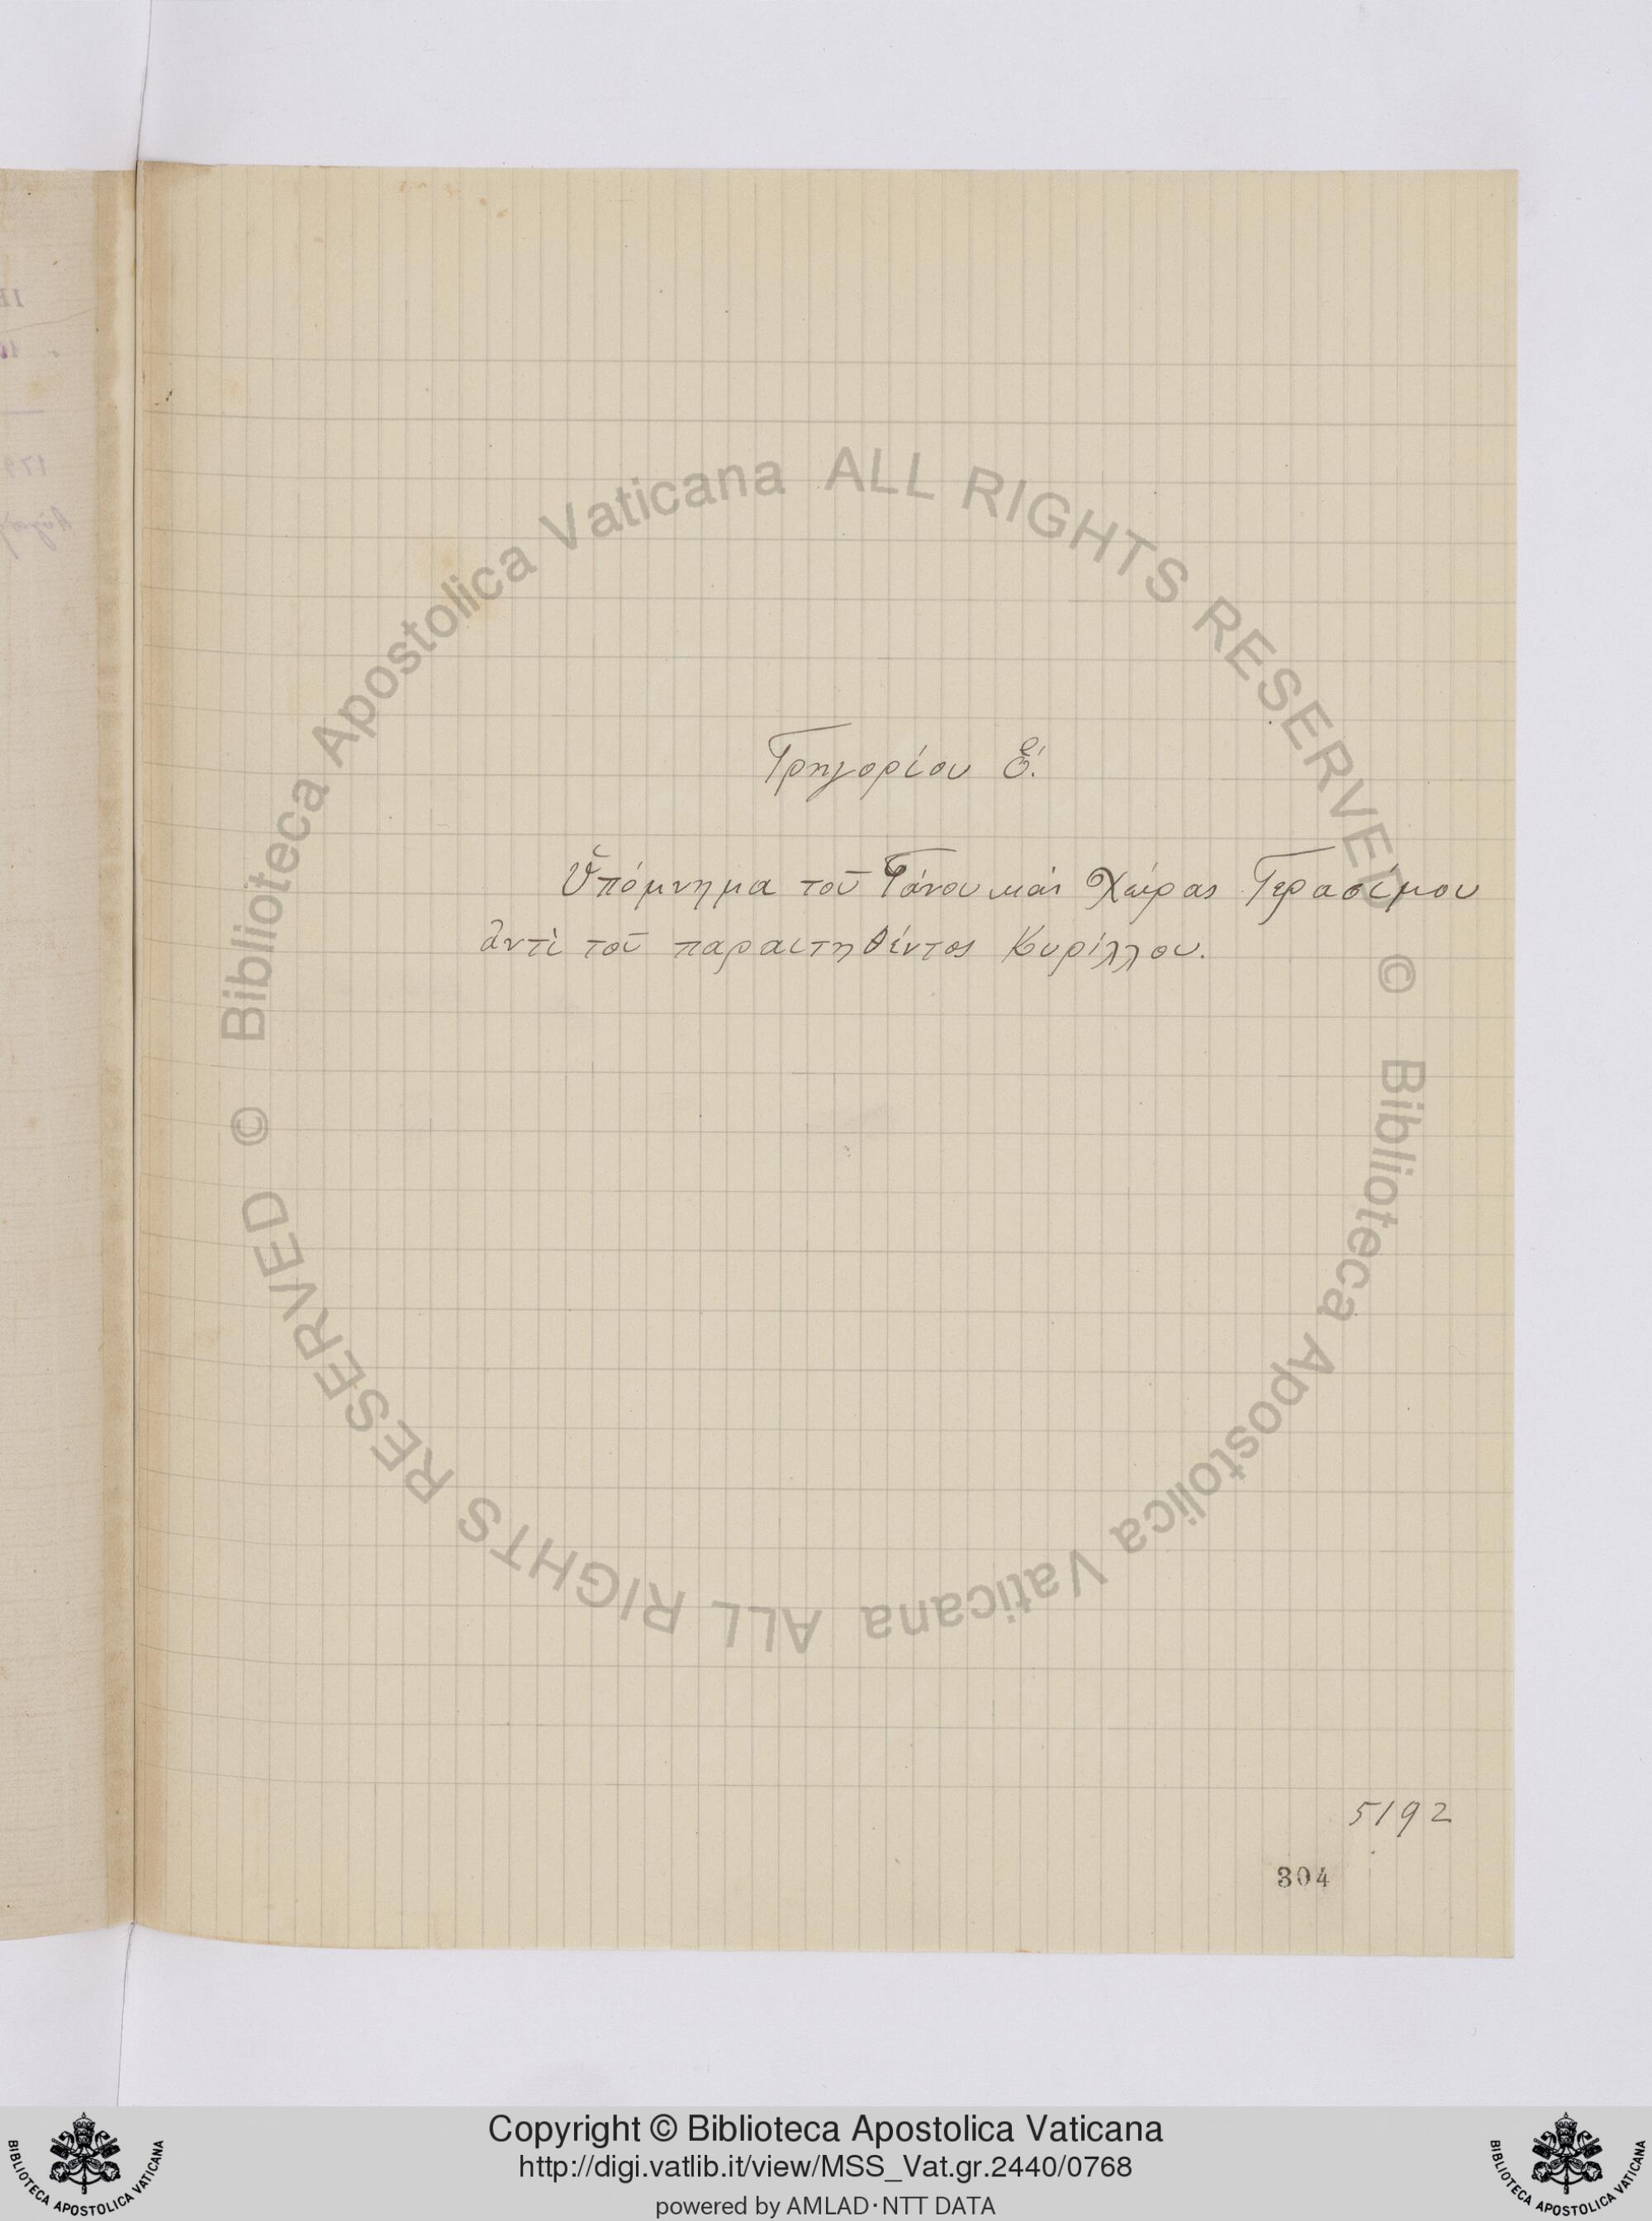 Γρηγορίου Ε΄.
Ὑπόμνημα τοῦ Γάνου καὶ Χώρας Γερασίμου
ἀντὶ τοῦ παραιτηθέντος Κυρίλλου.
5192
304
© Biblioteca Apostolica Vaticana ALL RIGHTS RESERVED
© Biblioteca Apostolica Vaticana ALL RIGHTS RESERVED
Copyright © Biblioteca Apostolica Vaticana
http://digi.vatlib.it/view/MSS_Vat.gr.2440/0768
powered by AMLAD·NTT DATA
BIBLIOTECA APOSTOLICA VATICANA
BIBLIOTECA APOSTOLICA VATICANA